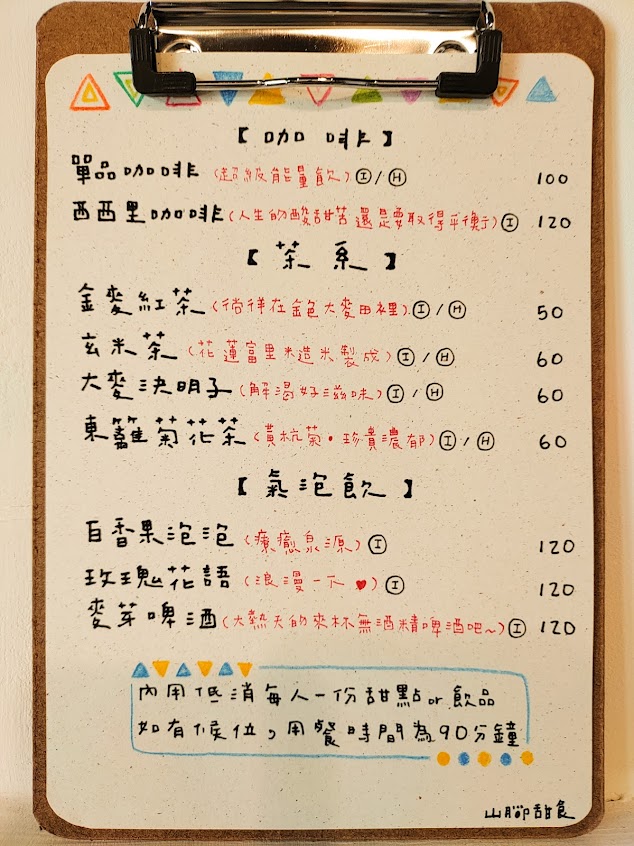 【咖啡】
單品咖啡(超級能量飲) Ⓘ/Ⓗ 100
西西里咖啡(人生的酸甜苦還是要取得平衡) Ⓘ 120
【茶系】
金麥紅茶(徜徉在金色大麥田裡) Ⓘ/Ⓗ 50
玄米茶(花蓮富里米造米製成) Ⓘ/Ⓗ 60
大麥決明子(解渴好滋味) Ⓘ/Ⓗ 60
東籬菊花茶(黃杭菊·珍貴濃郁) Ⓘ/Ⓗ 60
【氣泡飲】
百香果泡泡(療癒泉源) Ⓘ 120
玫瑰花語(浪漫一下♥) Ⓘ 120
麥芽啤酒(大熱天的來杯無酒精啤酒吧~) Ⓘ 120
內用低消每人一份甜點or飲品
如有候位,用餐時間為90分鐘
山腳甜食